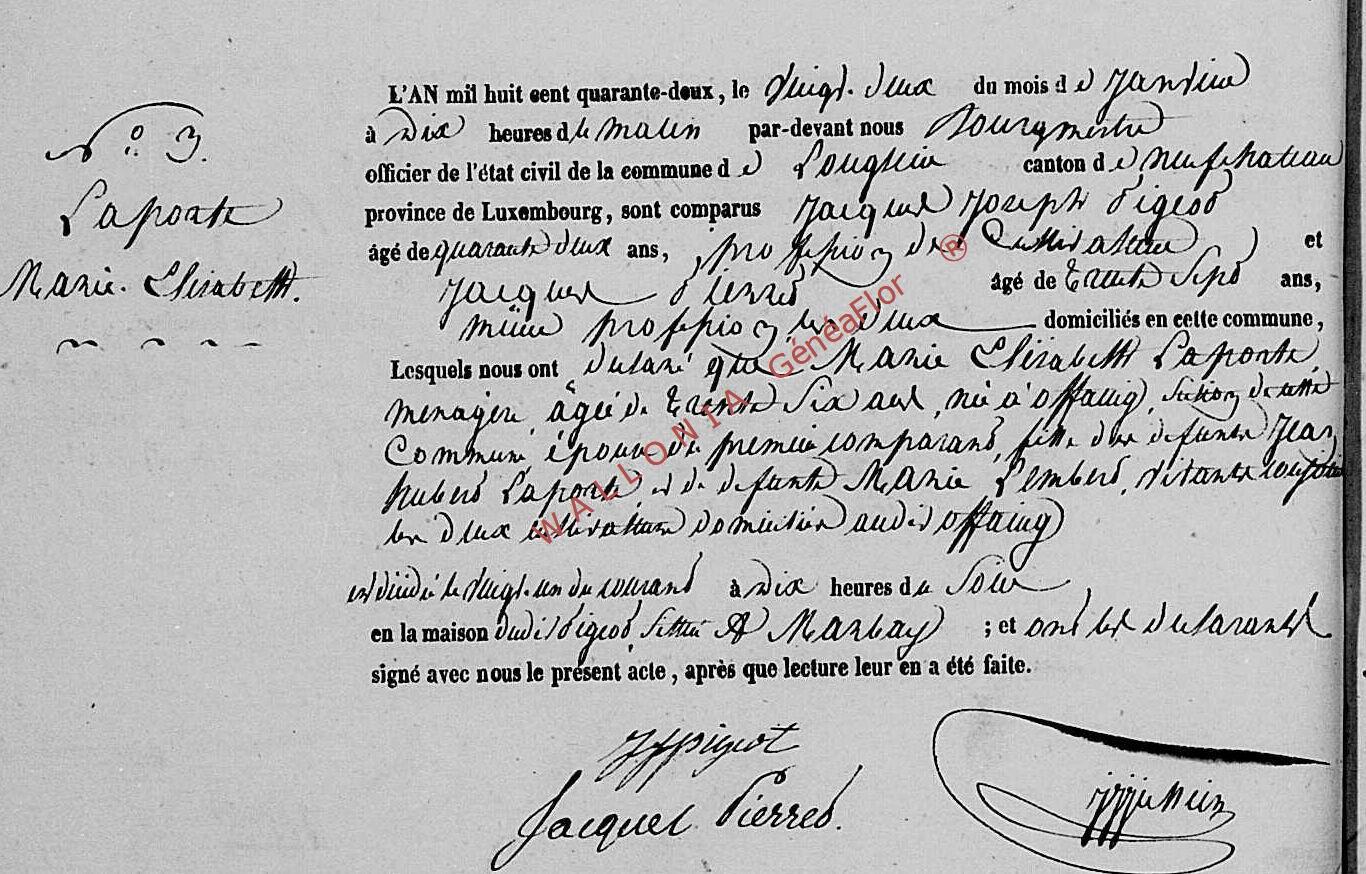 N.º 3.
Laporte
Marie Elisabeth.
L'AN mil huit cent quarante-deux, le vingt deux du mois de Janvier
à Dix heures du matin par-devant nous Bourgmestre
officier de l'état civil de la commune de Longlier canton de neufchateau
province de Luxembourg, sont comparus Jacques Joseph Pigeot
âgé de quarante deux ans, profession de Cultivateur et
Jacques Pierret âgé de trente Sept ans,
même profession les deux domiciliés en cette commune,
Lesquels nous ont déclaré que Marie Elisabeth Laporte
menagère âgée de trente Six ans, née à offaing, section de cette
Commune épouse du premier comparant, fille des defunts Jean
hubert Laporte et de defunte Marie Lambert, vivants conjoints
les deux cultivateurs domiciliés audit offaing
est décédée le vingt un du courant à Dix heures du Soir
en la maison dudit Pigeot située A Marbay ; et ont les declarants
signé avec nous le présent acte, après que lecture leur en a été faite.
JJpigeot
Jacques Pierret.
WALLONIA GénéaFlor ®